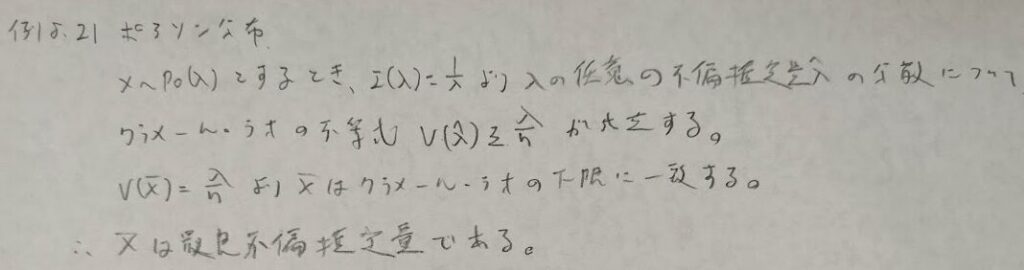 例5.21 ポアソン分布
X~Po(λ)とするとき、I(λ)=1/λ より λの任意の不偏推定量λ̂の分散について、
クラメール・ラオの不等式 V(λ̂)≧λ/n が成立する。
V(X̄)=λ/n より X̄はクラメール・ラオの下限に一致する。
∴ X̄は最良不偏推定量である。